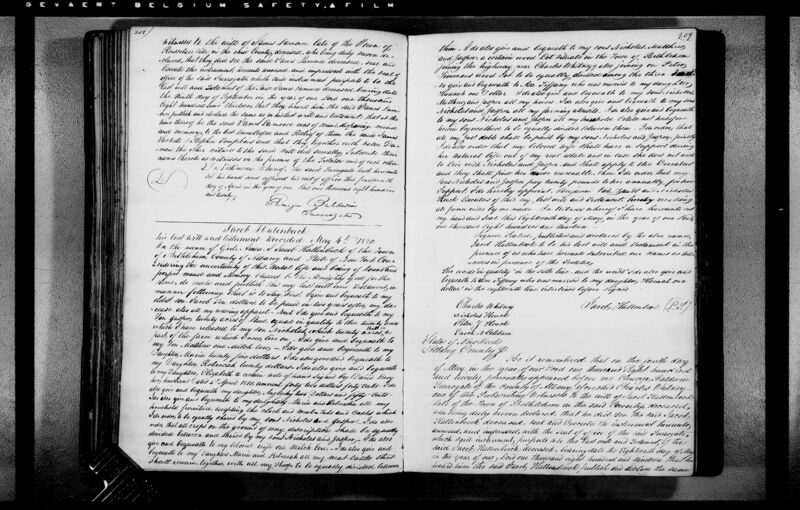 GEVAERT BELGIUM SAFETY FILM
208
witnesses to the will of James Vanoore late of the Town of
Rensselaerville in the said County, deceased, who being duly sworn de
clared, that they did see the said James Vanoore deceased, sign and
Execute the instrument hereunto annexed and impressed with the seal of
office of the said Surrogate which said instrument purports to be the
last will and Testament of the said James Vanoore deceased, bearing date
the Ninth day of September in the year of our Lord one thousand
Eight hundred and thirteen that they heard him the said James
publish and declare the same as his last will and testament: that at the
time thereof he the said James Vanoore was of sound disposing mind
and memory, to the best knowledge and belief of them the said James
and Stephen Tompkins and that they together with
the other witness to the said Will did severally subscribe their
names thereto as witnesses in the presence of the Testator and of each other
In testimony whereof the said Surrogate hath hereunto
set his hand and affixed his seal of office this fourteenth
day of April in the year of our Lord one thousand eight hundred
and twenty
Ebenezer Baldwin
Surrogate
Jacob Hallenbeck
his last will and testament Recorded May 4th 1820.
In the name of God, Amen. I Jacob Hallenbeck of the Town
of Bethlehem County of Albany and State of New York Con
sidering the uncertainty of this mortal life and being of sound and
proper mind and memory blessed be the Almighty God for the
same, do make and publish this my last will and Testament, in
manner following that is to say. First. I give and bequeath to my
eldest son Jacob ten dollars to be paid in two years after my de
cease also all my wearing apparel. And I do give and bequeath to my
Son Jasper twenty acres of land equal in quality to the twenty acres
which I have released to my son Nicholas, which twenty acres is
part of the farm which I now live on. I do give and bequeath to
my Son Matthew one Milch Cow. I do give and bequeath to my
Daughter Maria twenty five dollars. I do also give and bequeath to
my Daughter Rebecca twenty dollars. I do also give and bequeath
to my Daughter Elizabeth a certain note of hand signed by David
her husband dated April 1812 amount forty two dollars fifty Cents. I do
also give and bequeath my daughter twenty two Dollars and fifty Cents
I do also give and bequeath to my daughters Maria and Rebecca all my
household furniture excepting the clock and and Casks which
I do order to be equally shared by my sons Nicholas and Jasper. I do also
order that all crops on the ground of every description shall be equally
divided between and shared by my sons Nicholas and Jasper. I do also
give and bequeath to my wife one Milch Cow. I do also give and
bequeath to my Daughters Maria and Rebecca all my neat Cattle that
shall remain, together with all my Sheep to be equally divided between
209
them. I do also give and bequeath to my sons Nicholas Matthew
and Jasper a certain wood Lot situate in the Town of Bethlehem
joining the highway near Charles Whitney also joining on Peter
wood Lot to be equally divided among the three I do al
so give and bequeath to Ann Tiffany who was married to my daughter
Hannah one Dollar. I do also give and bequeath to my sons Nicholas
Matthew and Jasper all my I do also give and bequeath to my sons
Nicholas and Jasper all my farming utensils. I do also give and bequeath
to my sons Nicholas and Jasper all my Estate not hereto
fore bequeathed to be equally divided between them. I do order that
all my just debts shall be paid by my sons Nicholas and Jasper, jointly
I do also order that my beloved wife shall have a support during
her natural life out of my real estate and in case she does not wish
to live with Nicholas and Jasper and shall apply to the Executors
and they shall find her reasonable, then I do order that my
Sons Nicholas and Jasper pay twenty pounds to her annually, for her
Support. I do hereby appoint Benjamin and Nicholas
Houck Executors of this my last will and Testament, hereby revoking
all former wills by me made. In witness whereof I have hereunto set
my hand and seal this Eighteenth day of May, in the year of our Lord
one thousand eight hundred and nineteen
Signed, sealed, published and declared by the above named
Jacob Hallenbeck to be his last will and Testament in the
presence of us who have hereunto subscribed our names as wit
nesses in presence of the Testator
the words in quality in the sixth line, and the words I do also give and
bequeath to Ann Tiffany who was married to my daughter, Hannah one
dollar in the eighteenth line interlined before signed
Charles Whitney
Nicholas Houck
Peter J. Houck
Jacob Hallenbeck (L.S.)
State of New York
Albany County ss
Be it remembered that on the fourth day
of May in the year of our Lord one thousand Eight hundred
and twenty personally appeared before me Ebenezer Baldwin
Surrogate of the County of Albany aforesaid Charles Whitney
one of the subscribing witnesses to the will of Jacob Hallenbeck
late of the Town of Bethlehem in the said County, deceased,
who being duly sworn declared, that he did see the said Jacob
Hallenbeck deceased, sign and Execute the instrument hereunto
annexed, and impressed with the seal of office of the said Surrogate,
which said instrument, purports to be the last will and Testament of the
said Jacob Hallenbeck deceased, bearing date the Eighteenth day of May
in the year of our Lord one thousand eight hundred and nineteen that he
heard him the said Jacob Hallenbeck publish and declare the same